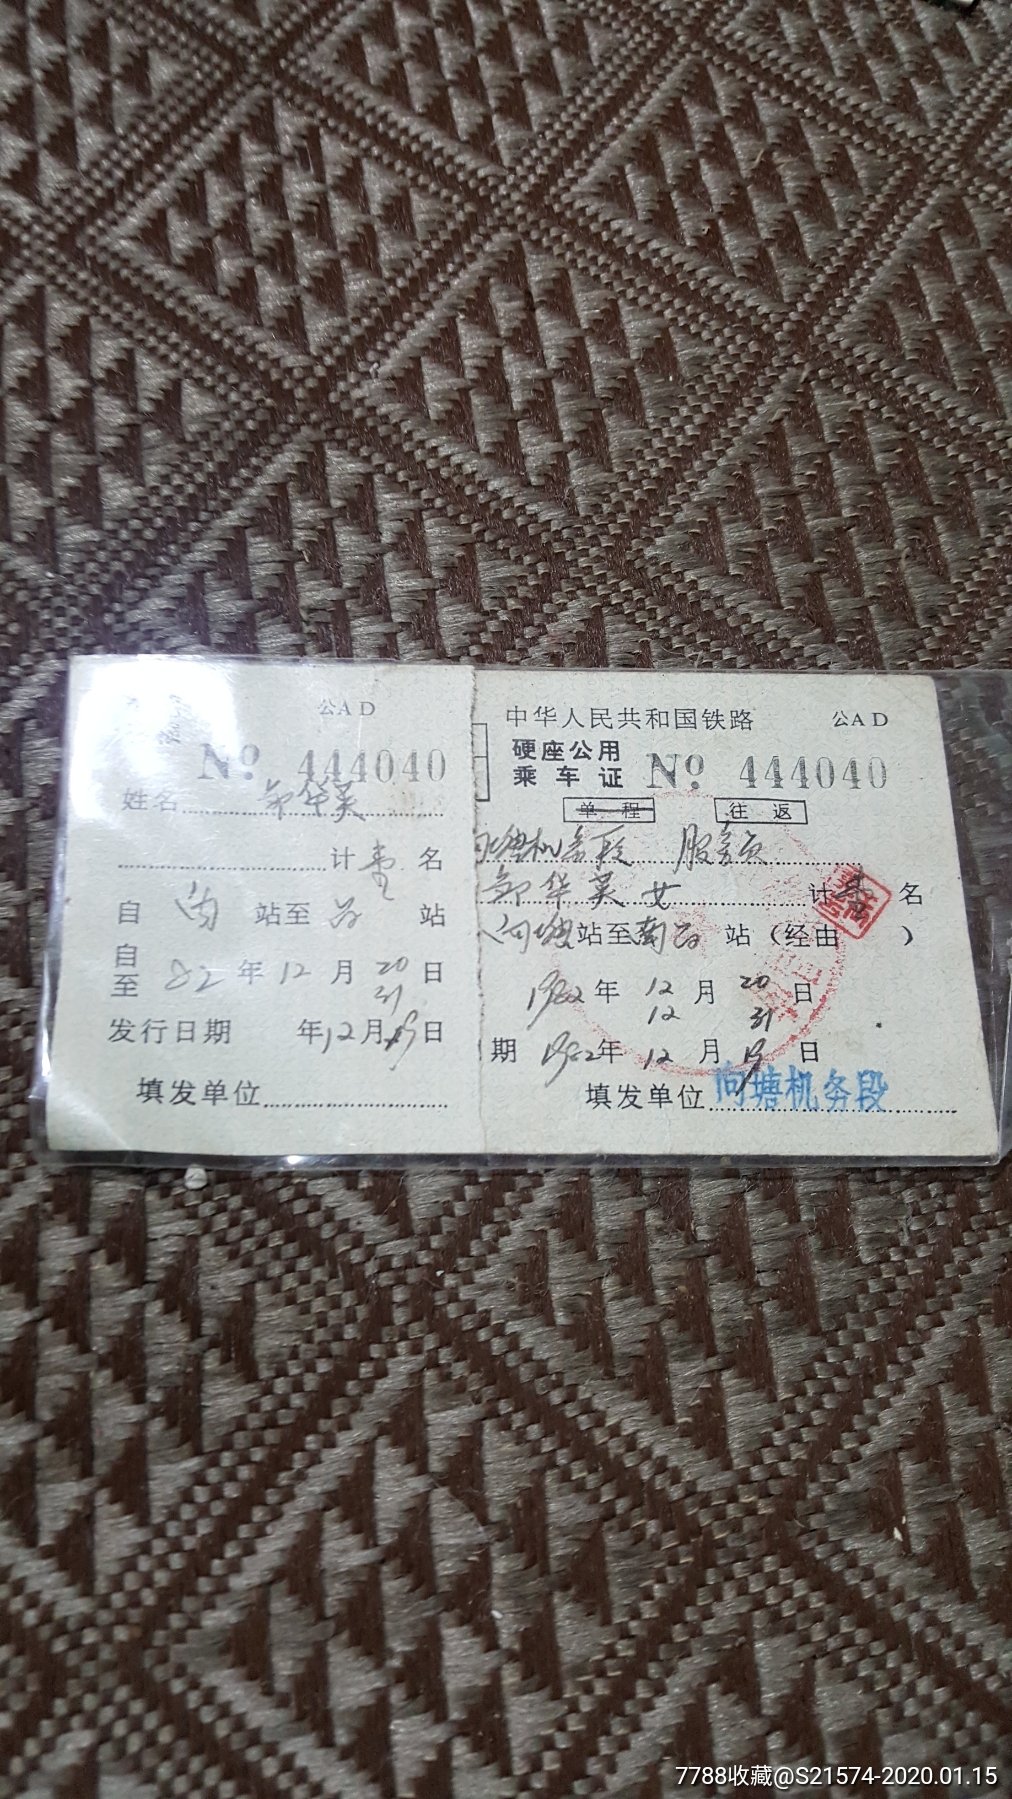 公AD
No 444040
姓名 邹华英
计壹名
自 向 站至 昌 站
自
至 82年12月20日
31
发行日期 年12月19日
填发单位
中华人民共和国铁路 公AD
硬座公用
乘车证 No 444040
单程 往返
向塘机务段 服务员
邹华英 女 计壹名
向塘站至南昌站（经由 ）
1982年12月20日
12 31
期 1982年12月19日
填发单位 向塘机务段
7788收藏@S21574-2020.01.15